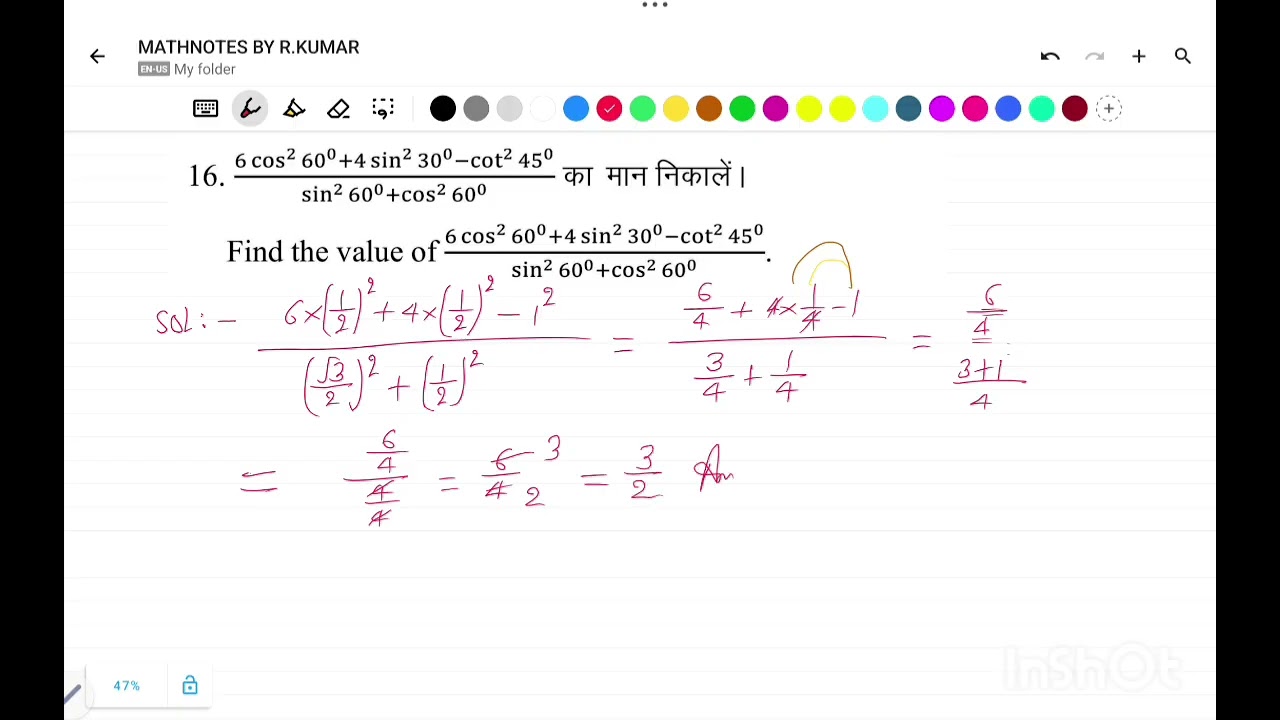 MATHNOTES BY R.KUMAR
EN-US My folder
16. (6 cos² 60⁰+4 sin² 30⁰−cot² 45⁰)/(sin² 60⁰+cos² 60⁰) का मान निकालें।
Find the value of (6 cos² 60⁰+4 sin² 30⁰−cot² 45⁰)/(sin² 60⁰+cos² 60⁰).
Sol:- (6×(1/2)²+4×(1/2)²−1²)/((√3/2)²+(1/2)²) = (6/4+4×1/4−1)/(3/4+1/4) = (6/4)/((3+1)/4)
= (6/4)/(4/4) = 6/4 3 2 = 3/2 Ans
47%
InShOt